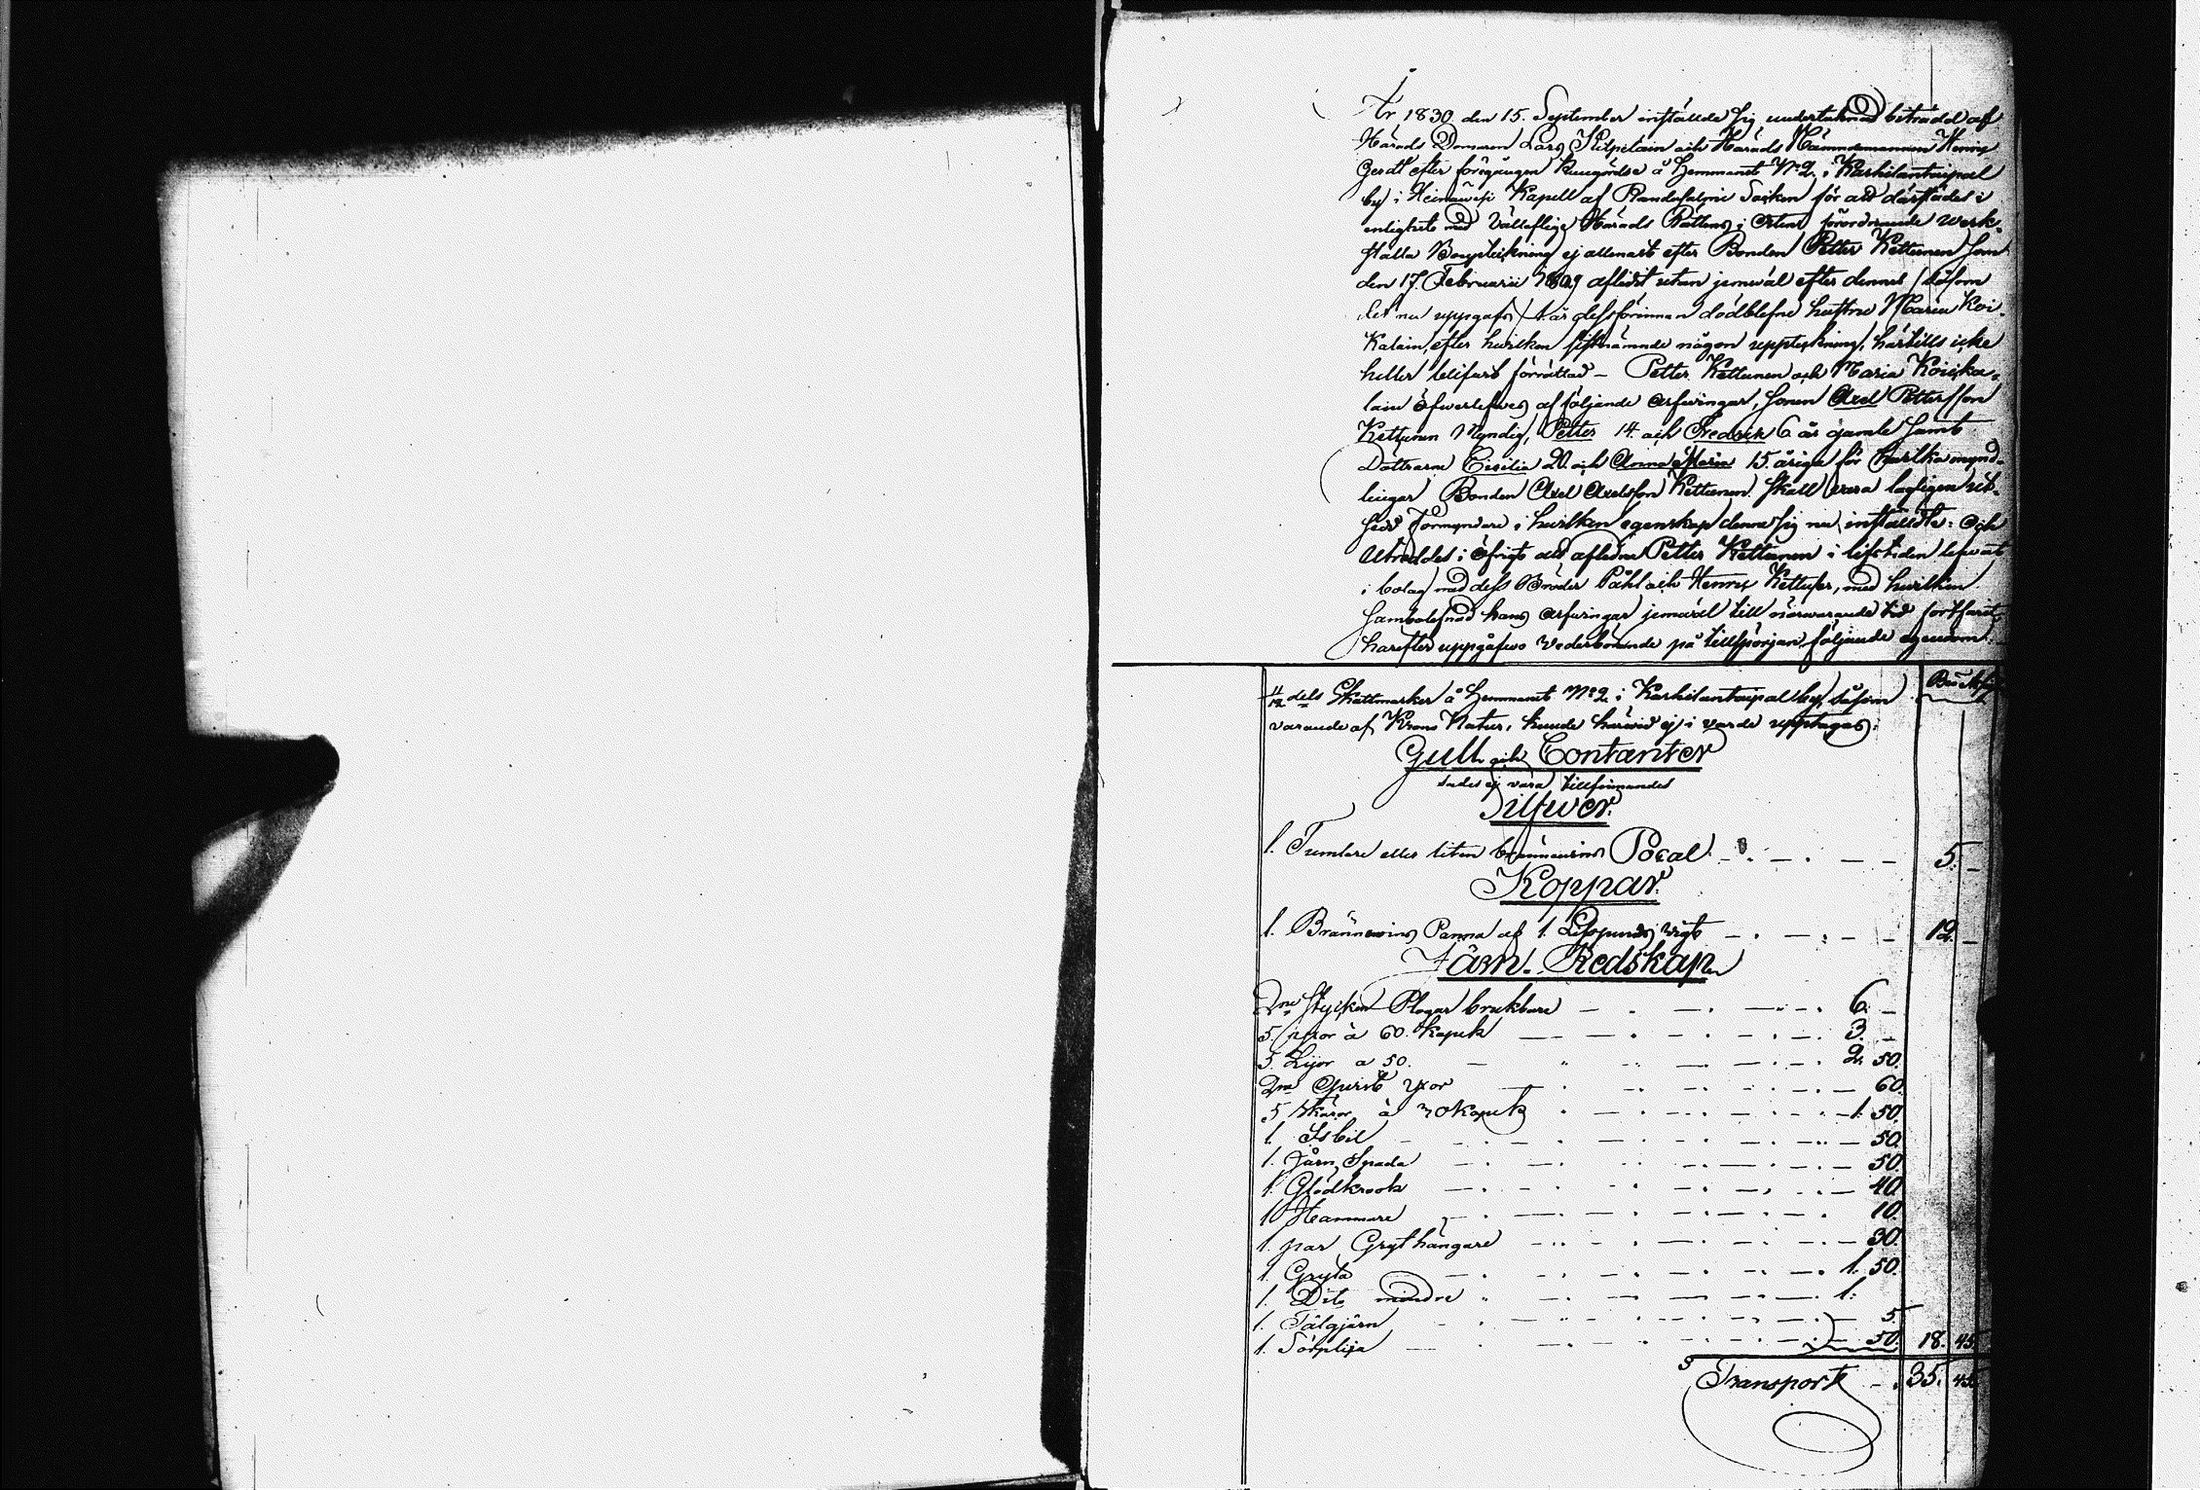 År 1830 den 15. September inställde sig undertecknad biträdd af
Härads Domaren Lars Kilpeläin och Härads Nämndemannen Henrig
Gerdt efter föregången kungörelse å Hemmanet No 2. i Karhilantaipal
by i Heinäwesi Kapell af Randasalmi Socken för att därstädes i
enlighet med Välloflige Härads Rättens i Orten förordnande werk-
ställa Bouptekning ej allenast efter Bonden Petter Kettunen som
den 17. Februarii 1829 aflidit utan jemwäl efter dennes / såsom
det nu uppgafs / år dessförinnan dödblefne hustru Maria Koi-
kalain, efter hwilken sistnämnde någon uppteckning, härtills icke
heller blifwit förrättad – Petter Kettunen och Maria Koicka-
lain öfwerlefwes af följande arfwingar, Sonen Axel Pettersson
Kettunen Myndig, Petter 14. och Fredrik 6 år gamle samt
Döttrarne Cicilia 20. och Anna Maria 15. åriga för hwilka mynd-
lingar Bonden Axel Axelsson Kettunen skall vara lagligen ut-
sedd Förmyndare i hwilken egenskap denne sig nu inställdte: och
Utreddes i öfrigt att aflidne Petter Kettunen i lifstiden lefwat
i bolag med dess Bröder Påhl och Henrig Kettuser, med hwilken
sambolefnad hans arfwingar jemwäl till närwarande tid fortfarit,
harefter uppgåfwo Vederbörande på tillspörjan följande egendom:
Bco
dels Skattmarker å Hemmanet No 2. i Karhilantaipal by, såsom
varande af Krono Natur, kunde härwid ej i värde upptagas:
Gull och Contanter
sades ej vara tillfinnandes
Silfwer.
1. Tumlare eller liten brännewins Pocal. 5. –
Koppar.
1. Brännewins Panna af 1 Lispunds wigt 12. –
Järn Redskap
2ne stycken Plogar brukbare 6. –
5. yxor à 60. Kopek 3. –
5. Lijor a 50. 2. 50.
2ne Qwist yxor 60.
5 skäror à 30 Kopek 1. 50.
1. Isbil 50.
1. Järn Spada 50.
1. Glödkrook 40.
1 Hammare 10.
1. par Grythängare 30.
1. Gryta 1. 50.
1. Dito mindre 1.
1. Täljjärn 5.
1. 50. 18. 45.
Transport 35. 45.